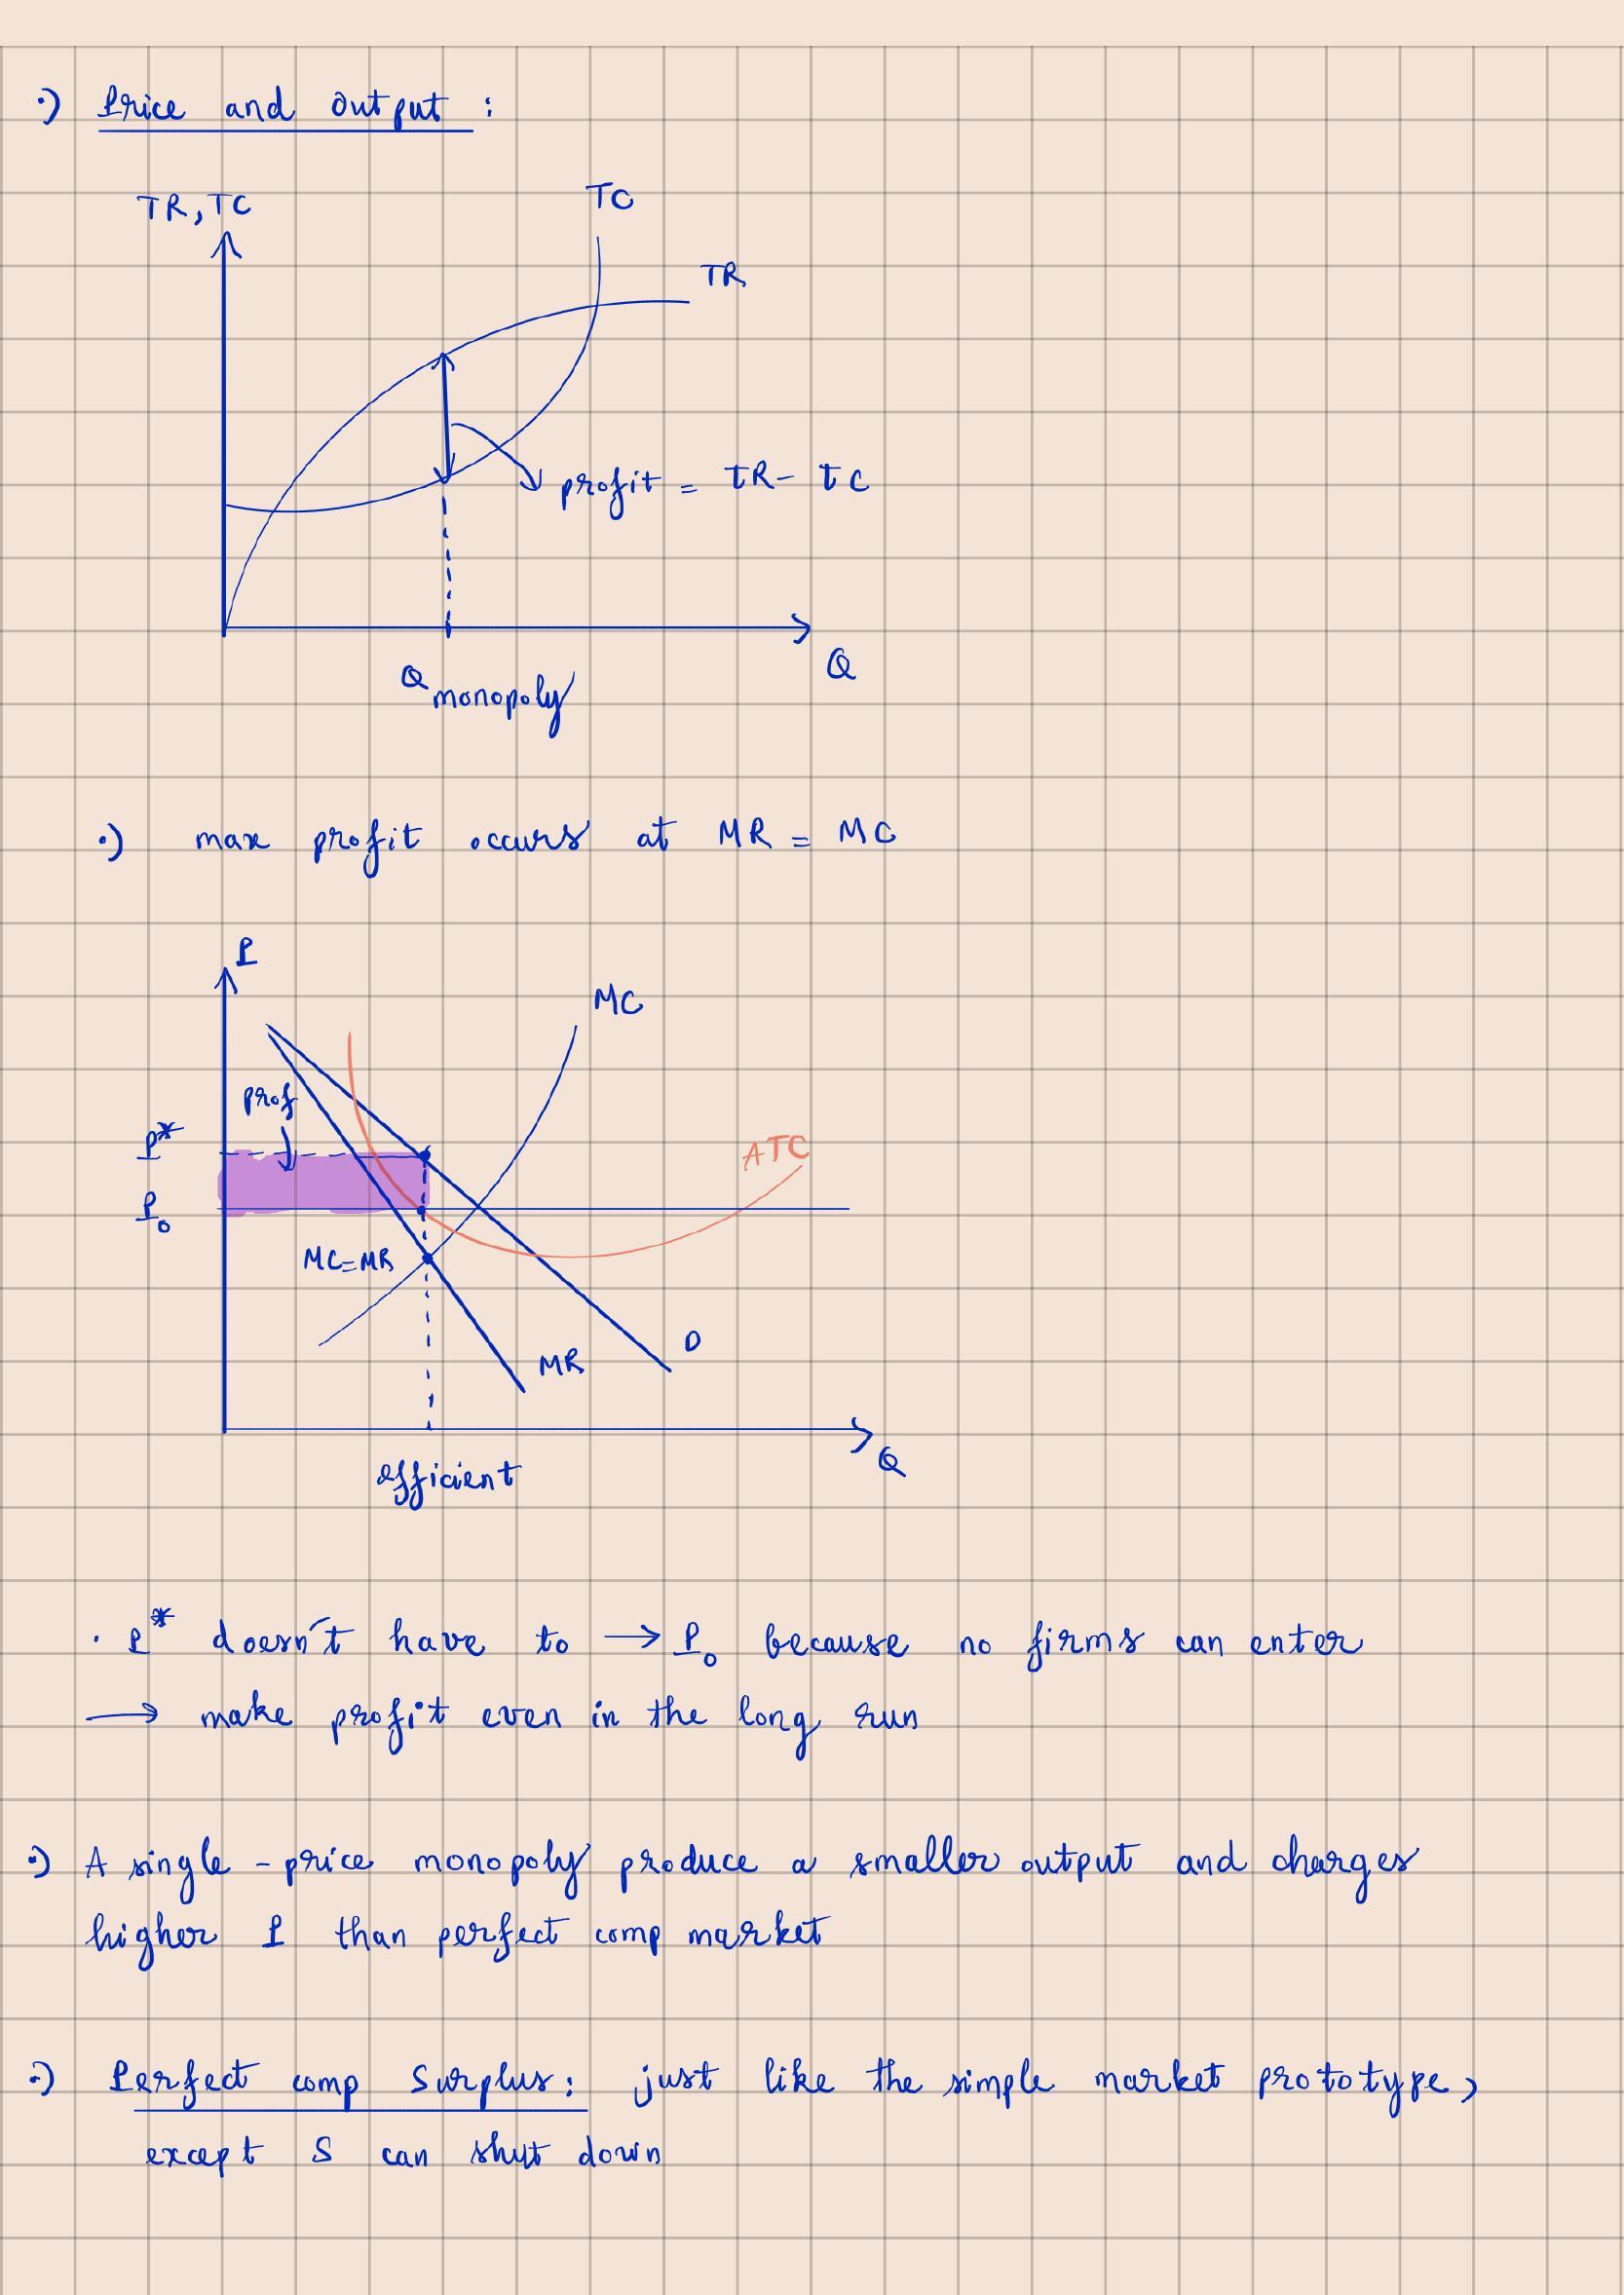 Price and Output :
TR, TC
TC
TR
profit = TR - TC
Q
Q monopoly
max profit occurs at MR = MC
P
MC
prof
P*
ATC
P₀
MC=MR
D
MR
Q
efficient
. P* doesn't have to → P₀ because no firms can enter
→ make profit even in the long run
A single-price monopoly produce a smaller output and charges
higher P than perfect comp market
Perfect comp Surplus: just like the simple market prototype,
except S can shut down